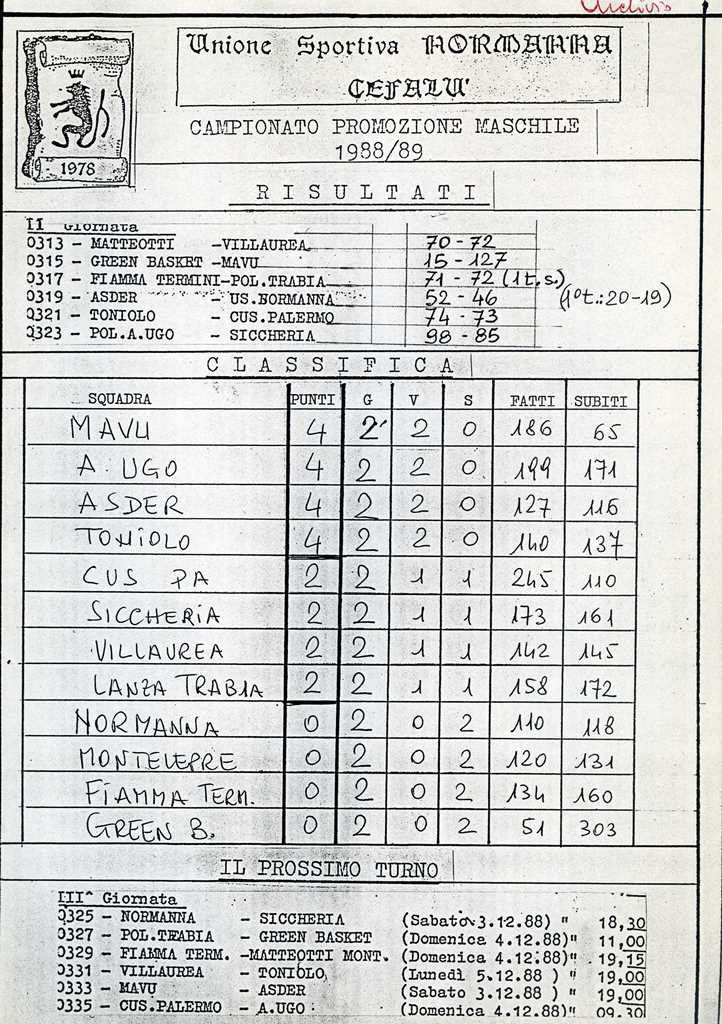 Archivio
Unione Sportiva NORMANNA
CEFALU'
1978
CAMPIONATO PROMOZIONE MASCHILE
1988/89
RISULTATI
II Giornata
0313 - MATTEOTTI - VILLAUREA 70 - 72
0315 - GREEN BASKET - MAVU 15 - 127
0317 - FIAMMA TERMINI - POL.TRABIA 71 - 72 (1 t.s.)
0319 - ASDER - US.NORMANNA 52 - 46 (1°t.: 20-19)
0321 - TONIOLO - CUS.PALERMO 74 - 73
0323 - POL.A.UGO - SICCHERIA 98 - 85
CLASSIFICA
SQUADRA PUNTI G V S FATTI SUBITI
MAVU 4 2 2 0 186 65
A. UGO 4 2 2 0 199 171
ASDER 4 2 2 0 127 116
TONIOLO 4 2 2 0 140 137
CUS PA 2 2 1 1 245 110
SICCHERIA 2 2 1 1 173 161
VILLAUREA 2 2 1 1 142 145
LANZA TRABIA 2 2 1 1 158 172
NORMANNA 0 2 0 2 110 118
MONTELEPRE 0 2 0 2 120 131
FIAMMA TERM. 0 2 0 2 134 160
GREEN B. 0 2 0 2 51 303
IL PROSSIMO TURNO
III^ Giornata
0325 - NORMANNA - SICCHERIA (Sabato 3.12.88) " 18,30
0327 - POL.TRABIA - GREEN BASKET (Domenica 4.12.88)" 11,00
0329 - FIAMMA TERM. - MATTEOTTI MONT. (Domenica 4.12.88)" 19,15
0331 - VILLAUREA - TONIOLO (Lunedì 5.12.88 ) " 19,00
0333 - MAVU - ASDER (Sabato 3.12.88 ) " 19,00
0335 - CUS.PALERMO - A.UGO (Domenica 4.12.88)" 09.30